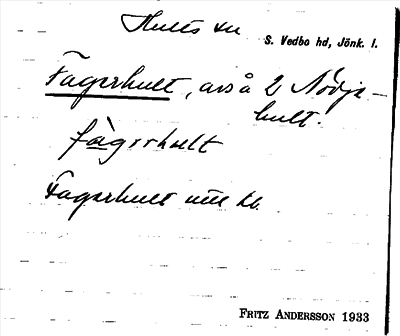 Hults sn
S. Vedbo hd, Jönk. l.
Fagerhult, avs å 2 Nödje-
hult.
fàgərhult
Fagerhult utt. kb.
FRITZ ANDERSSON 1933